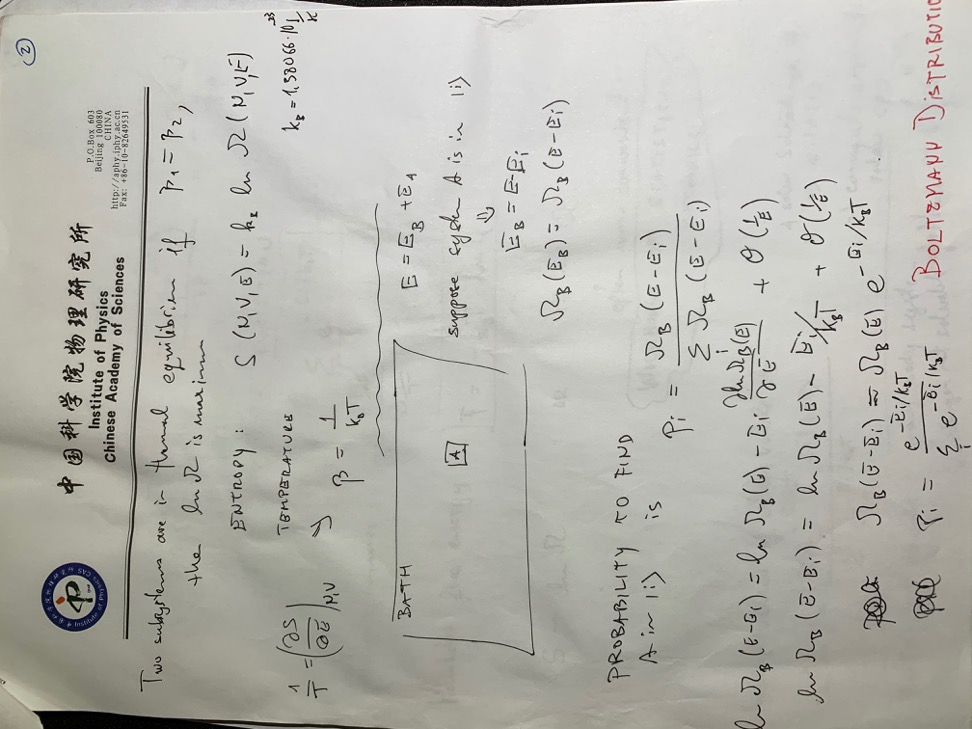 ②
中国科学院物理研究所
Institute of Physics
Chinese Academy of Sciences
P.O.Box 603
Beijing 100080
CHINA
http://aphy.iphy.ac.cn
Fax: +86-10-82649531
Two subsystems are in thermal equilibrium if β₁ = β₂,
the ln Ω is maximum
ENTROPY: S(N,V,E) = k_B ln Ω(N,V,E)
TEMPERATURE k_B = 1.38066·10⁻²³ J/K
1/T = (∂S/∂E)_NV ⇒ β = 1/k_BT
BATH
A
E = E_B + E_A
suppose system A is in |i⟩
⇓
E_B = E-E_i
Ω_B(E_B) = Ω_B(E-E_i)
PROBABILITY TO FIND
A in |i⟩ is P_i = Ω_B(E-E_i) / Σ_i Ω_B(E-E_i)
ln Ω_B(E-E_i) = ln Ω_B(E) - E_i ∂ln Ω_B(E)/∂E + O(1/E)
ln Ω_B(E-E_i) = ln Ω_B(E) - E_i/k_BT + O(1/E)
Ω_B(E-E_i) ≈ Ω_B(E) e^{-E_i/k_BT}.
P_i = e^{-E_i/k_BT} / Σ_i e^{-E_i/k_BT}
BOLTZMANN DISTRIBUTIO